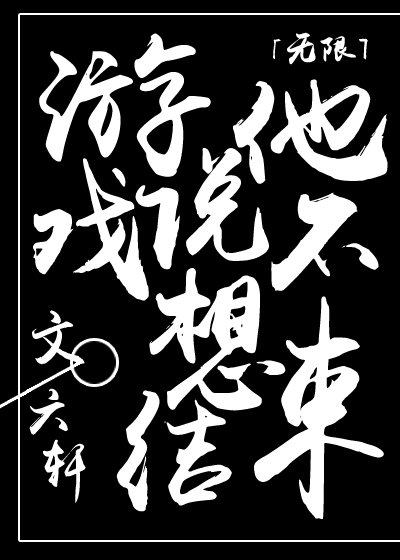 「无限」
他
说不
想
结束
游戏
文
六轩